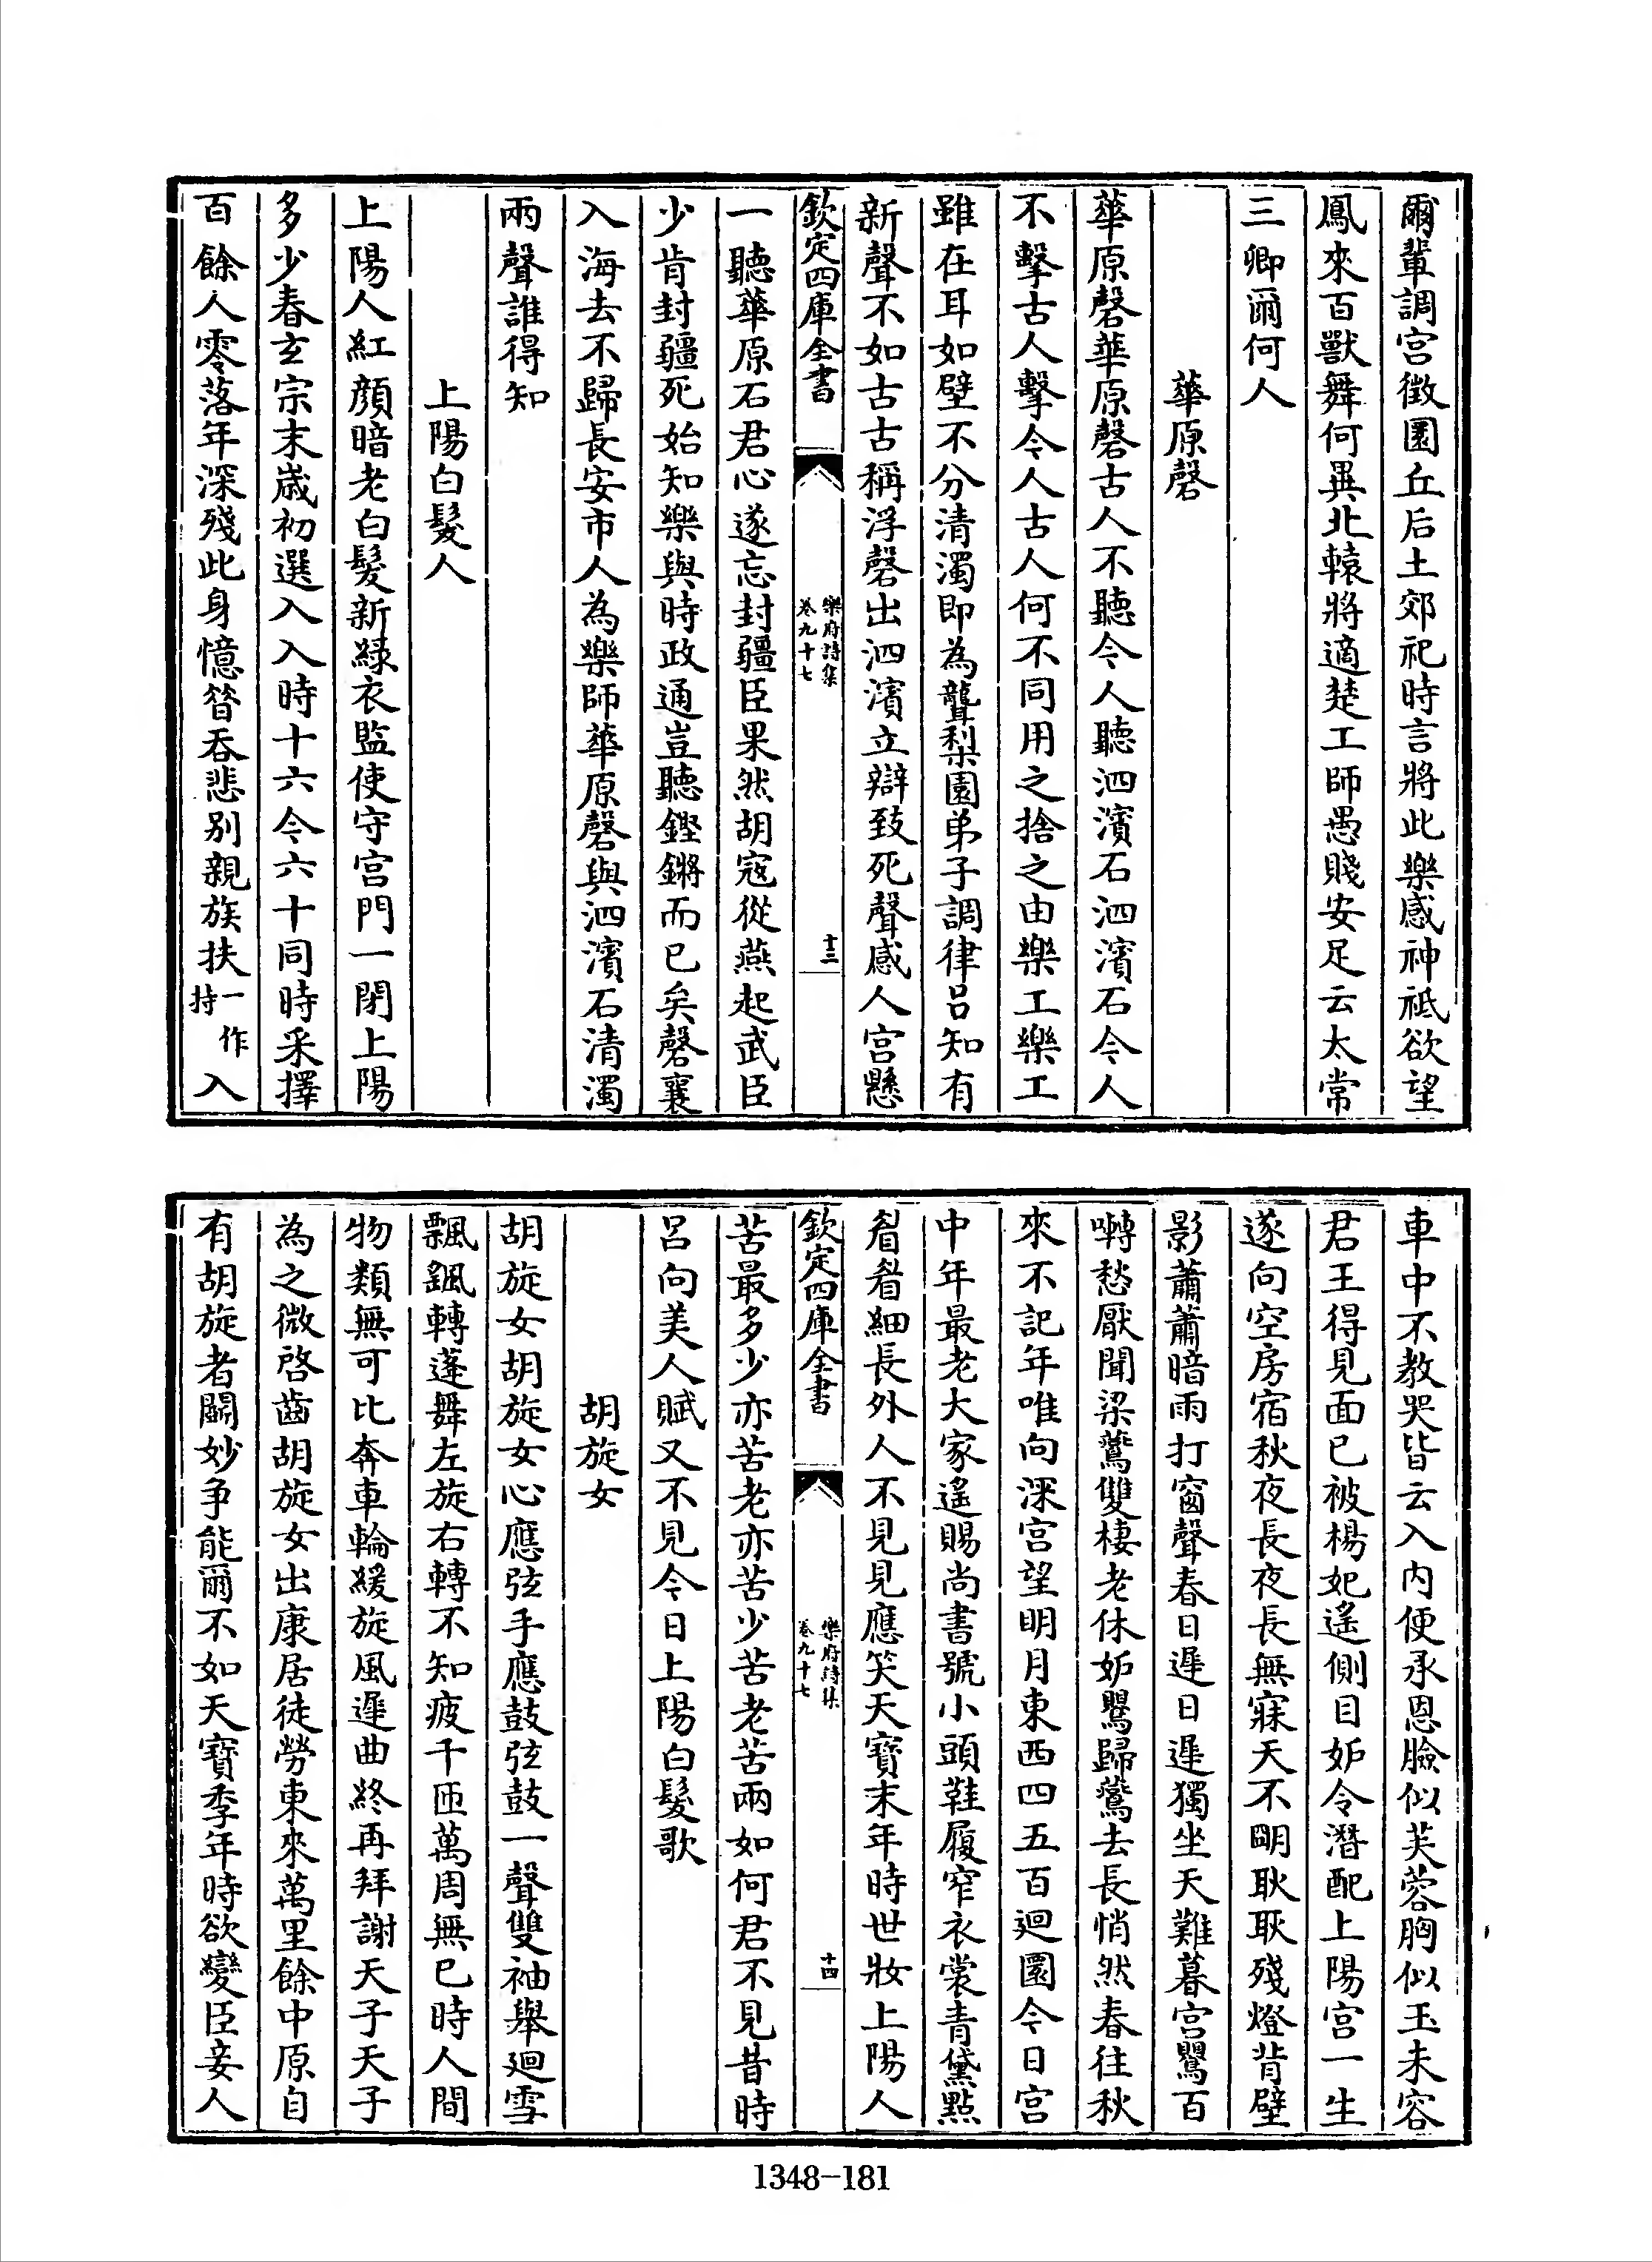 爾輩調宫徵圜丘后土郊祀時言將此樂感神祗欲望
鳳來百獸舞何異北轅將適楚工師愚賤安足云太常
三卿爾何人
華原磬
華原磬華原磬古人不聽今人聽泗濱石泗濱石今人
不擊古人擊今人古人何不同用之捨之由樂工樂工
雖在耳如壁不分清濁即為聾梨園弟子調律吕知有
新聲不如古古稱浮磬出泗濱立辯致死聲感人宫懸
欽定四庫全書
樂府詩集
卷九十七
十三
一聽華原石君心遂忘封疆臣果然胡寇從燕起武臣
少肯封疆死始知樂與時政通豈聽鏗鏘而已矣磬襄
入海去不歸長安市人為樂師華原磬與泗濱石清濁
兩聲誰得知
上陽白髮人
上陽人紅顔暗老白髮新緑衣監使守宫門一閉上陽
多少春玄宗末歲初選入入時十六今六十同時采擇
百餘人零落年深殘此身憶昝吞悲别親族扶一作持入
車中不教哭皆云入内便承恩臉似芙蓉胸似玉未容
君王得見面已被楊妃遙側目妒令潛配上陽宫一生
遂向空房宿秋夜長夜長無寐天不明耿耿殘燈背壁
影蕭蕭暗雨打窗聲春日遲日遲獨坐天難暮宫鸎百
囀愁厭聞梁鷰雙棲老休妒鸎歸鷰去長悄然春往秋
來不記年唯向深宫望明月東西四五百迴圓今日宫
中年最老大家遙賜尚書號小頭鞋履窄衣裳青黛點
眉眉細長外人不見見應笑天寳末年時世妝上陽人
欽定四庫全書
樂府詩集
卷九十七
十四
苦最多少亦苦老亦苦少苦老苦兩如何君不見昔時
吕向美人賦又不見今日上陽白髮歌
胡旋女
胡旋女胡旋女心應弦手應鼓弦鼓一聲雙袖舉迴雪
飄飖轉蓬舞左旋右轉不知疲千匝萬周無已時人間
物類無可比奔車輪緩旋風遲曲終再拜謝天子天子
為之微啓齒胡旋女出康居徒勞東來萬里餘中原自
有胡旋者鬭妙争能爾不如天寳季年時欲變臣妾人
1348-181